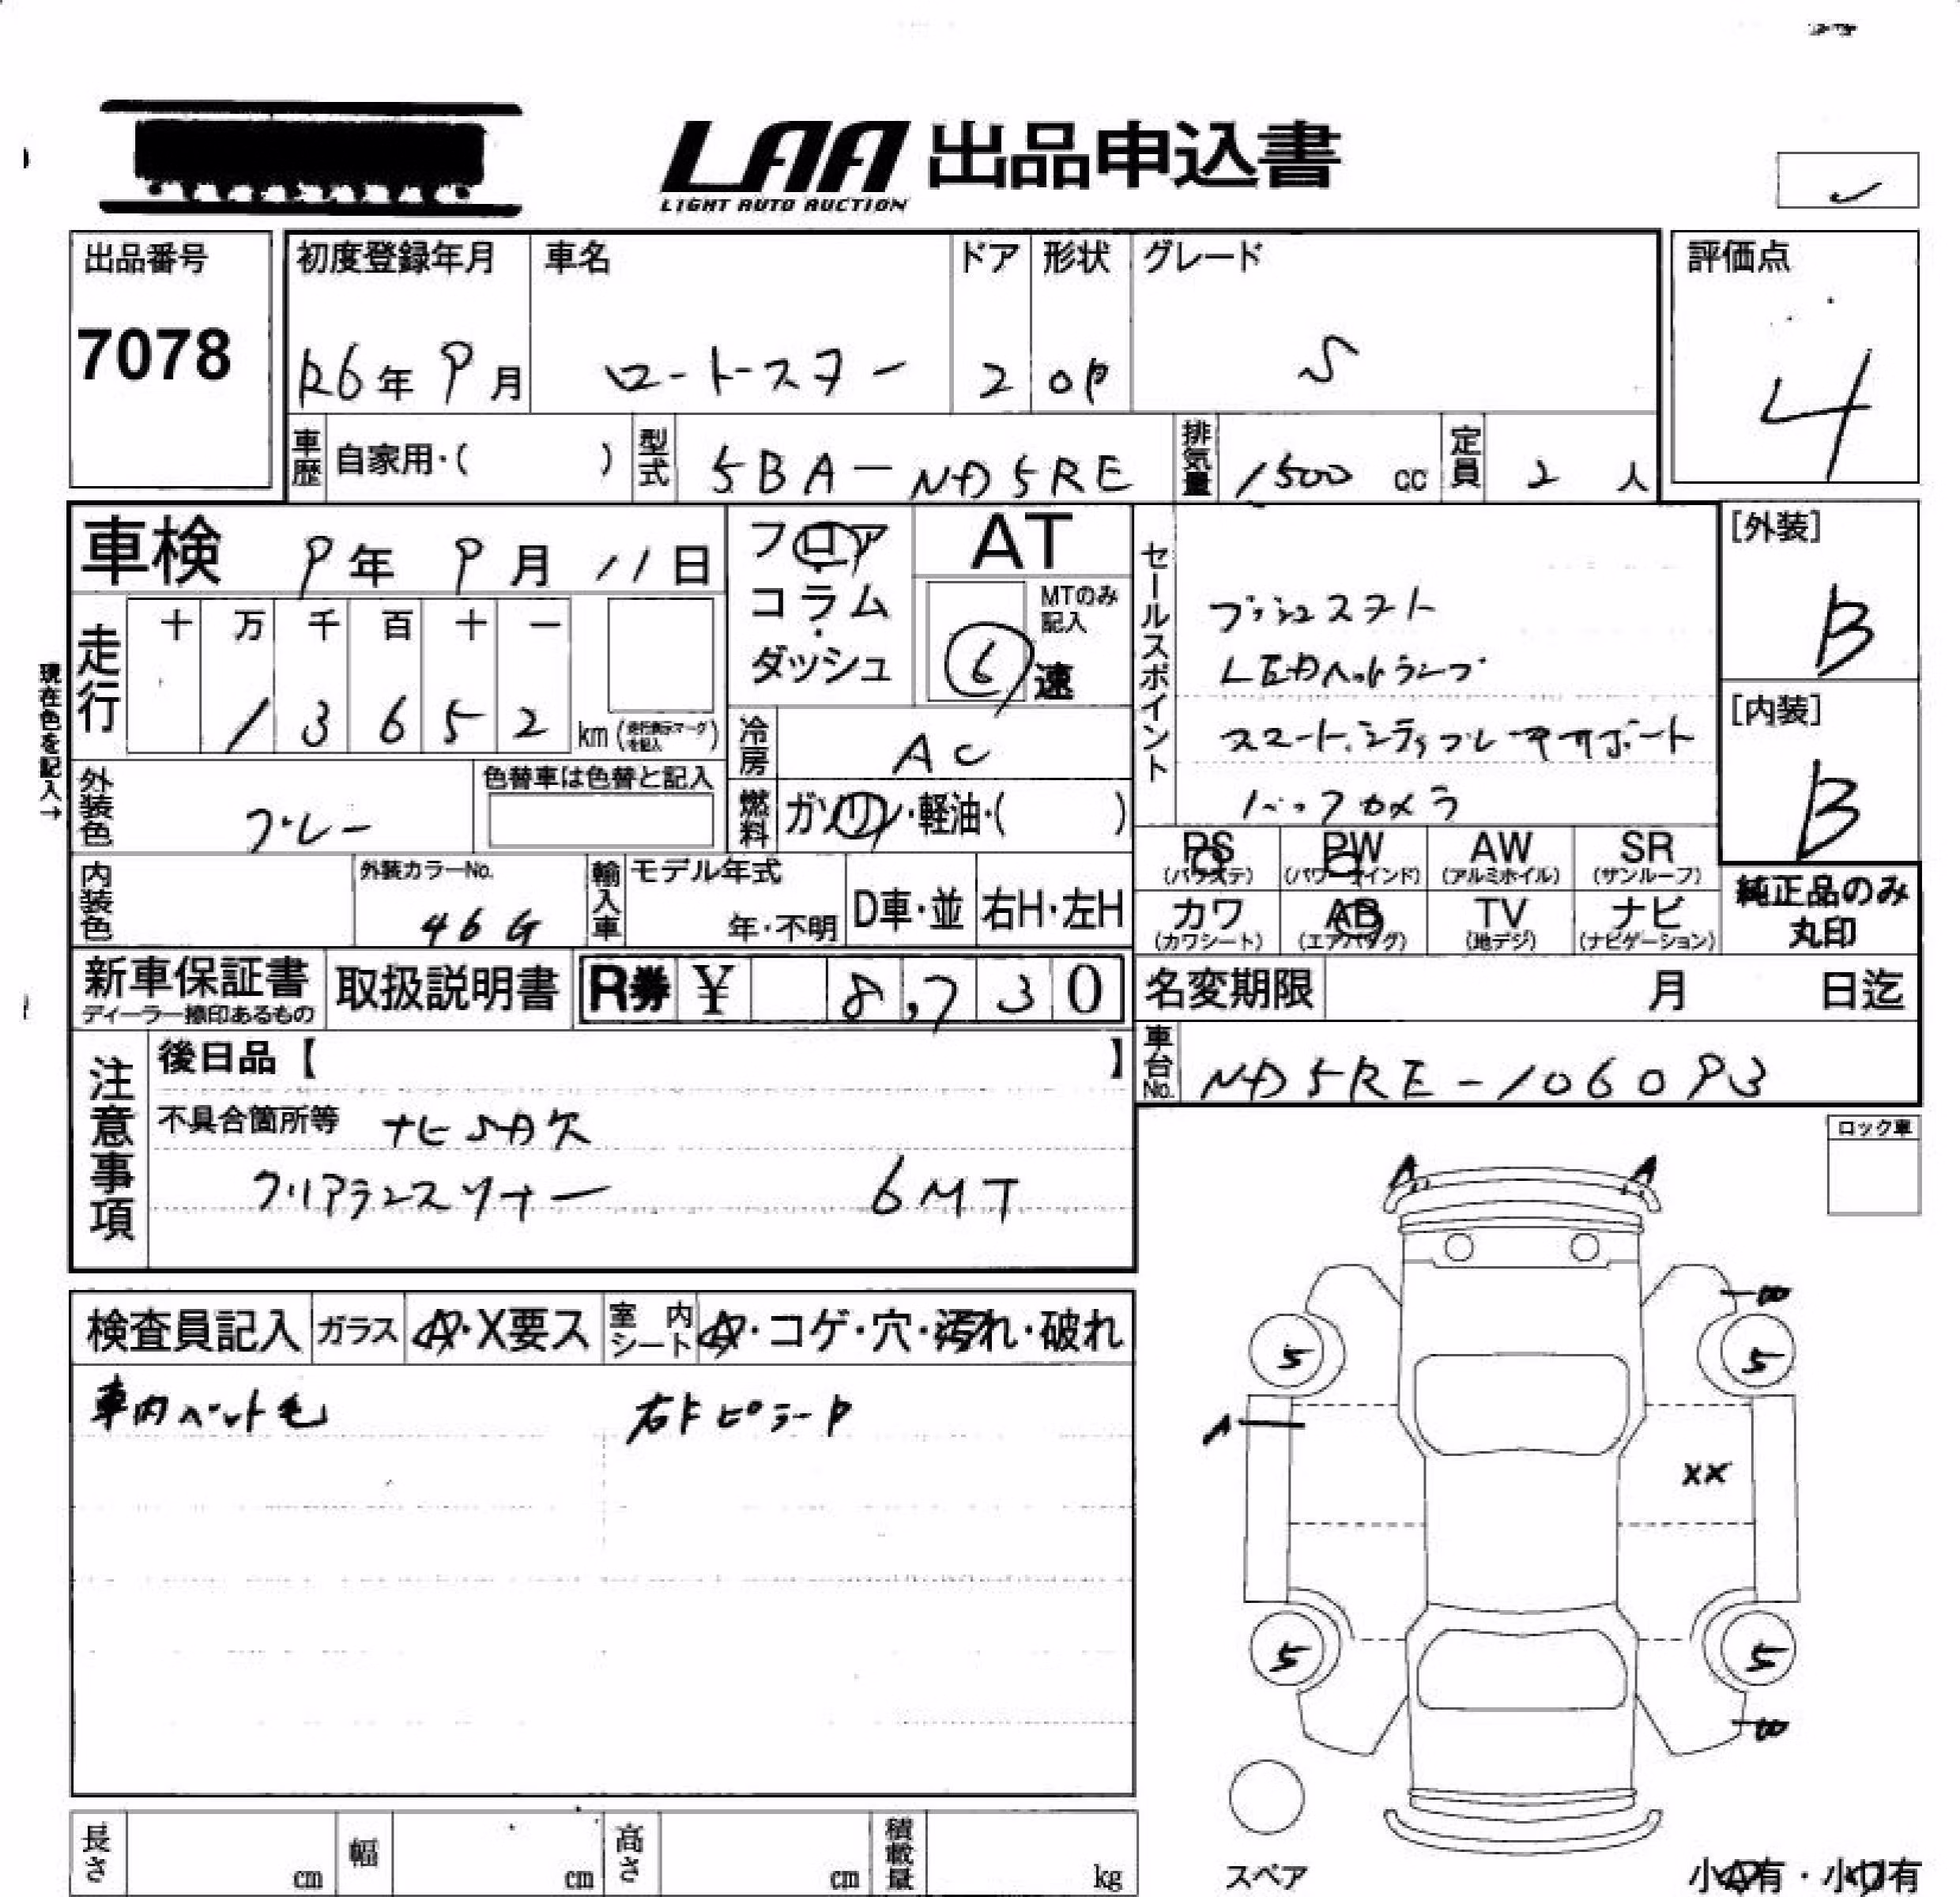 LAA 出品申込書
LIGHT AUTO AUCTION
出品番号
7078
初度登録年月
R6年 9月
車名
ロードスター
ドア
2
形状
OP
グレード
S
評価点
4
車歴 自家用・( )
型式 5BA-ND5RE
排気量 1500 cc
定員 2 人
車検 9年 9月 11日
走行 十 万 千 百 十 一
1 3 6 5 2 km
現在色を記入→
フロア・コラム・ダッシュ
AT
MTのみ記入
6 速
冷房 AC
燃料 ガソリン・軽油・( )
セールスポイント
プッシュスタート
LEDヘッドランプ
スマートシティブレーキサポート
バックカメラ
[外装]
B
[内装]
B
外装色 グレー
色替車は色替と記入
内装色
外装カラーNo.
46G
輸入車 モデル年式
年・不明
D車・並 右H・左H
PS (パワステ)
PW (パワーウインド)
AW (アルミホイル)
SR (サンルーフ)
カワ (カワシート)
AB (エアバッグ)
TV (地デジ)
ナビ (ナビゲーション)
純正品のみ丸印
新車保証書
ディーラー捺印あるもの
取扱説明書
R券 ¥ 8,730
名変期限 月 日迄
車台No. ND5RE-106093
注意事項
後日品【 】
不具合箇所等 ナビSD欠
クリアランスソナー 6MT
ロック車
A A
検査員記入 ガラス A・X要ス 室内シート A・コゲ・穴・汚れ・破れ
車内ペット毛
5 5
A
XX
5 5
長さ cm 幅 cm 高さ cm 積載量 kg
スペア
小A有・小U有